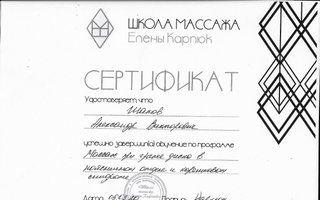 ШКОЛА МАССАЖА
Елены Карпюк
СЕРТИФИКАТ
Удостоверяет, что
Александр Викторович
успешно завершил(а) обучение по программе
Массаж при грыже диска в
поясничном отделе и корешковом
синдроме